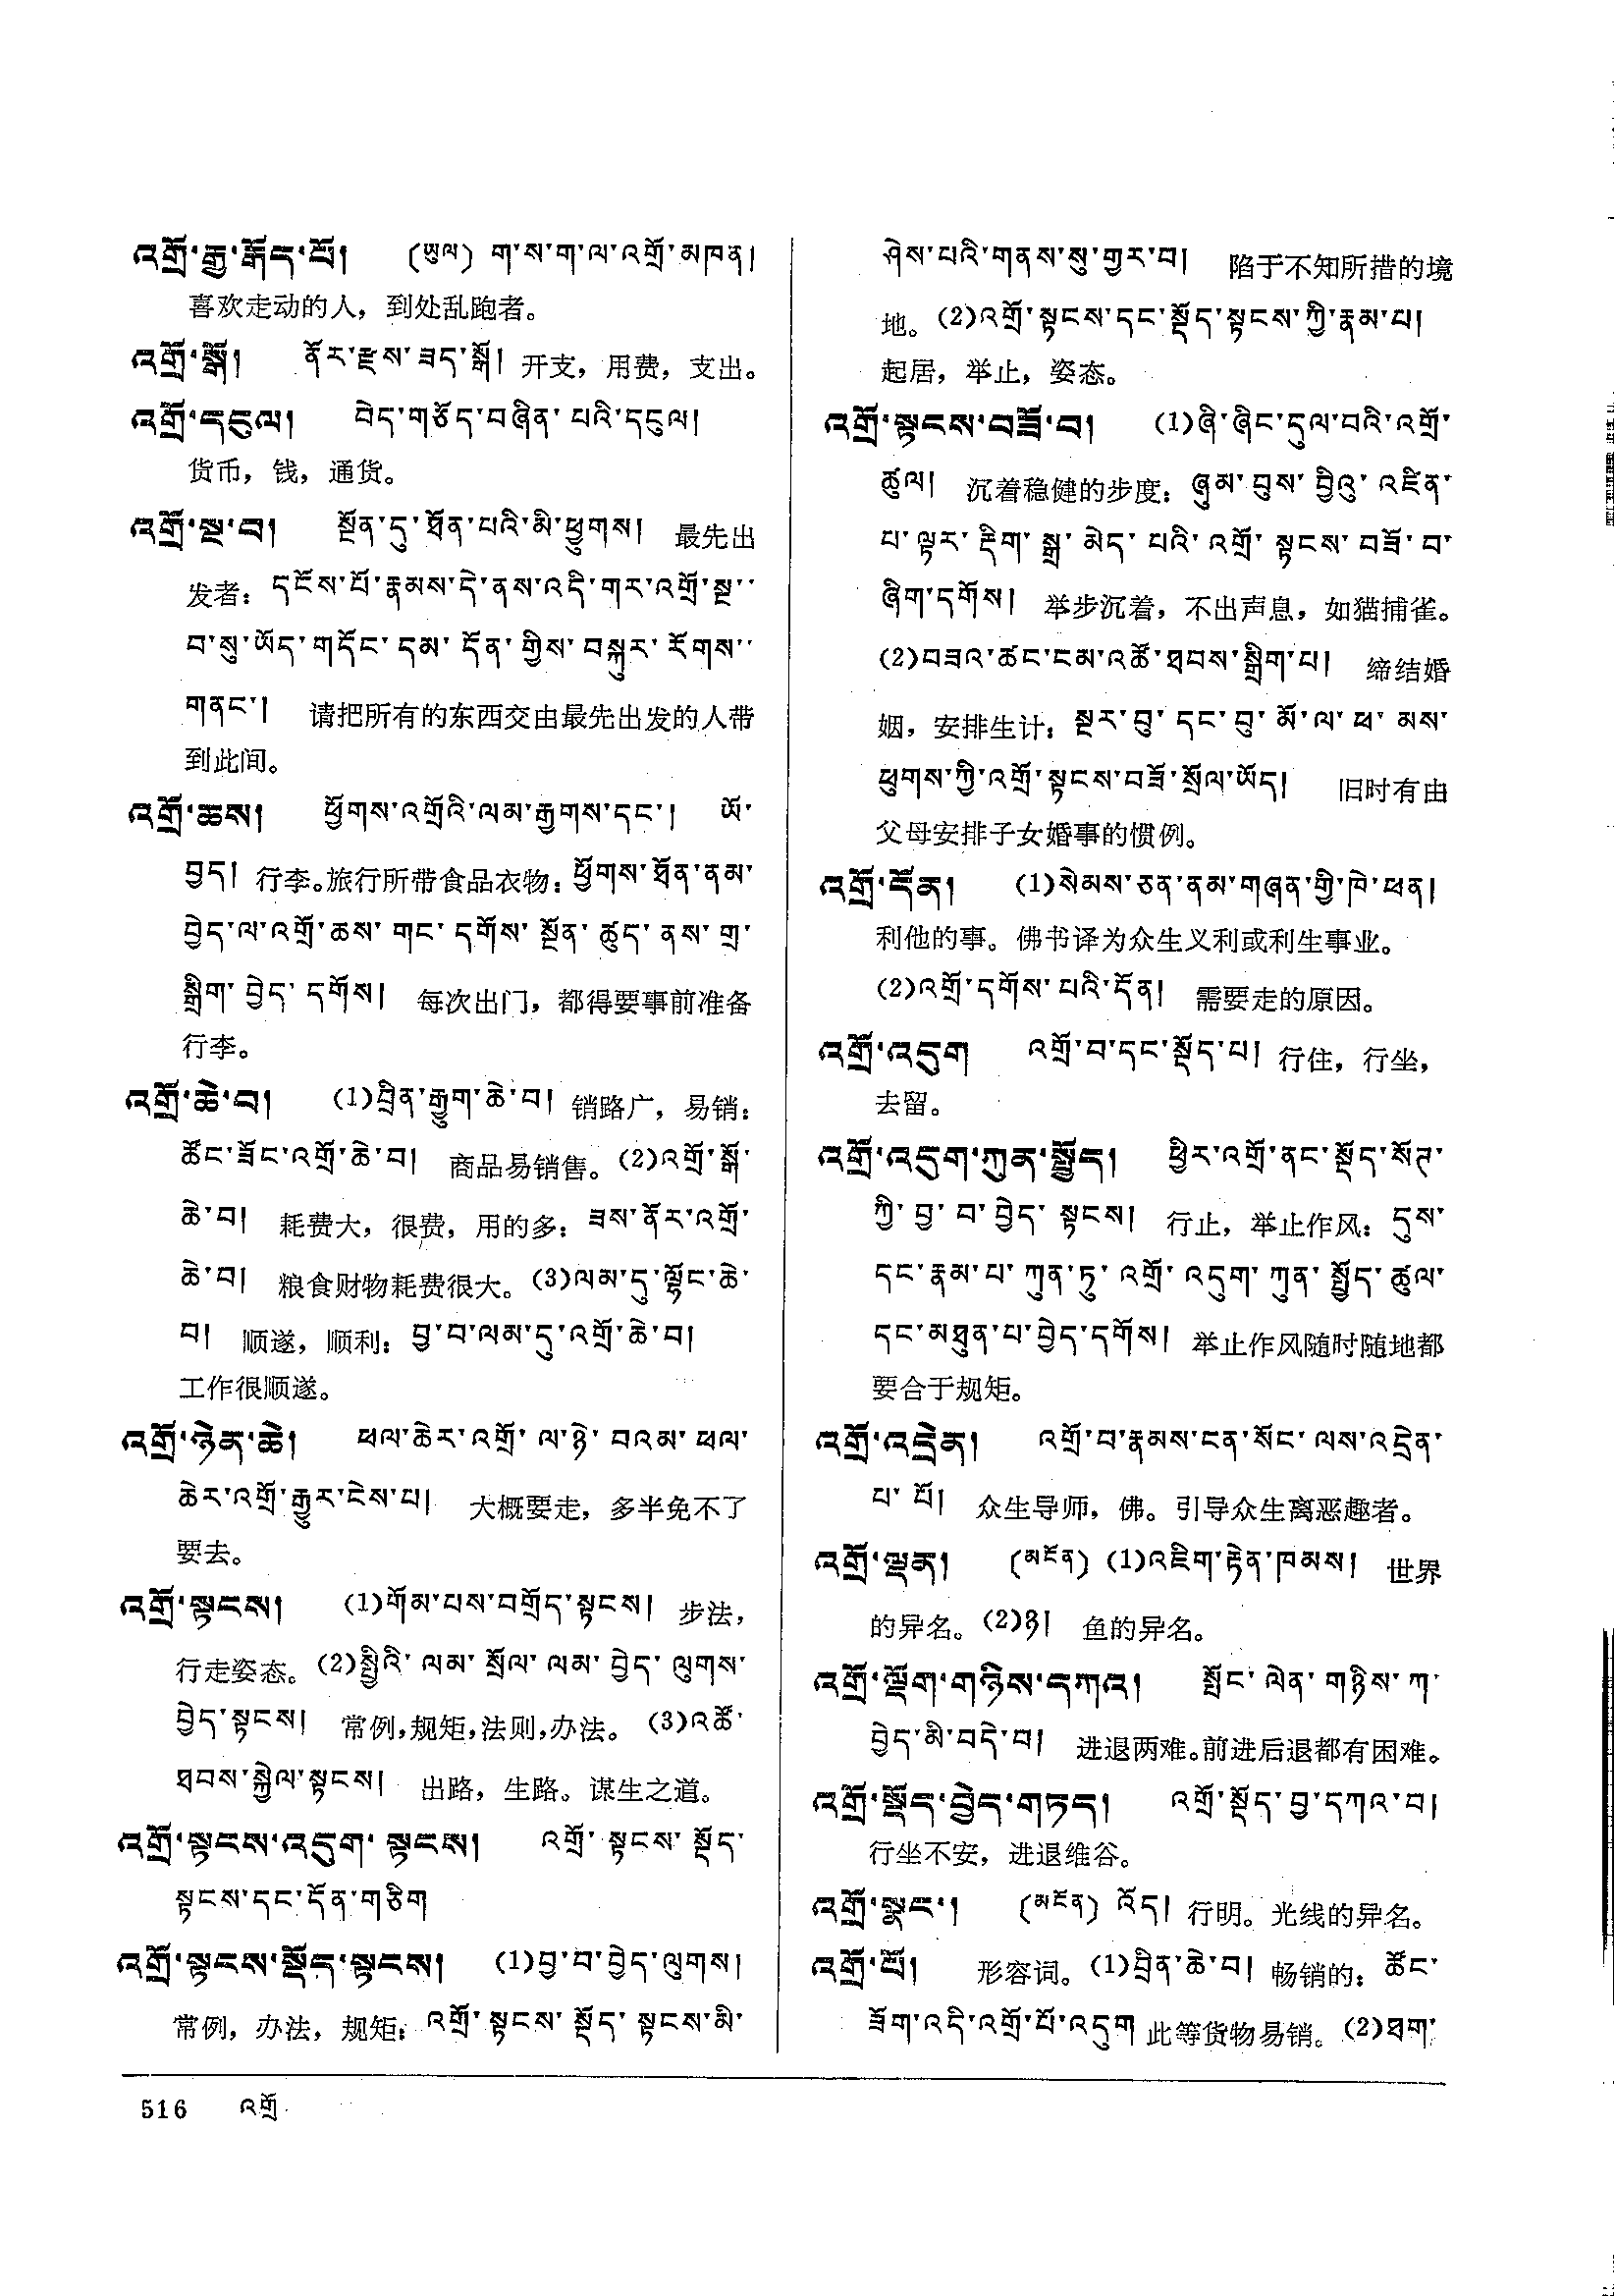 འགྲོ་རྒྱུ་རྒོད་པོ། (ཡུལ) ག་ས་ག་ལ་འགྲོ་མཁན།
喜欢走动的人，到处乱跑者。
འགྲོ་སྒོ། ནོར་རྫས་ཟད་སྒོ། 开支，用费，支出。
འགྲོ་དངུལ། བེད་གཅོད་བཞིན་པའི་དངུལ།
货币，钱，通货。
འགྲོ་སྔ་བ། སྔོན་དུ་ཐོན་པའི་མི་ཕྱུགས། 最先出
发者：དངོས་པོ་རྣམས་དེ་ནས་འདི་གར་འགྲོ་སྔ་
བ་སུ་ཡོད་གདོང་དམ་དོན་གྱིས་བསྐུར་རོགས་
གནང་། 请把所有的东西交由最先出发的人带
到此间。
འགྲོ་ཆས། ཕྱོགས་འགྲོའི་ལམ་རྒྱགས་དང་། ཡོ་
བྱད། 行李。旅行所带食品衣物：ཕྱོགས་ཐོན་ནམ་
བྱེད་ལ་འགྲོ་ཆས་གང་དགོས་སྔོན་ཚུད་ནས་གྲ་
སྒྲིག་བྱེད་དགོས། 每次出门，都得要事前准备
行李。
འགྲོ་ཆེ་བ། (1)བྲིན་རྒྱུག་ཆེ་བ། 销路广，易销：
ཚོང་ཟོང་འགྲོ་ཆེ་བ། 商品易销售。(2)འགྲོ་སྒོ་
ཆེ་བ། 耗费大，很费，用的多：ཟས་ནོར་འགྲོ་
ཆེ་བ། 粮食财物耗费很大。(3)ལམ་དུ་ལྷོང་ཆེ་
བ། 顺遂，顺利：བྱ་བ་ལམ་དུ་འགྲོ་ཆེ་བ།
工作很顺遂。
འགྲོ་ཉེན་ཆེ། ཕལ་ཆེར་འགྲོ་ལ་ཉེ་བའམ་ཕལ་
ཆེར་འགྲོ་རྒྱུར་ངེས་པ། 大概要走，多半免不了
要去。
འགྲོ་སྟངས། (1)གོམ་པས་བགྲོད་སྟངས། 步法，
行走姿态。(2)སྤྱིའི་ལམ་སྲོལ་ལམ་བྱེད་ལུགས་
བྱེད་སྟངས། 常例，规矩，法则，办法。(3)འཚོ་
ཐབས་སྐྱེལ་སྟངས། 出路，生路。谋生之道。
འགྲོ་སྟངས་འདུག་སྟངས། འགྲོ་སྟངས་སྡོད་
སྟངས་དང་དོན་གཅིག
འགྲོ་སྟངས་སྡོད་སྟངས། (1)བྱ་བ་བྱེད་ལུགས།
常例，办法，规矩：འགྲོ་སྟངས་སྡོད་སྟངས་མི་
ཤེས་པའི་གནས་སུ་གྱུར་བ། 陷于不知所措的境
地。(2)འགྲོ་སྟངས་དང་སྡོད་སྟངས་ཀྱི་རྣམ་པ།
起居，举止，姿态。
འགྲོ་སྟངས་བཟོ་བ། (1)ཞི་ཞིང་དུལ་བའི་འགྲོ་
ཚུལ། 沉着稳健的步度：ཞུམ་བུས་བྱིའུ་འཛིན་
པ་ལྟར་རྡིག་སྒྲ་མེད་པའི་འགྲོ་སྟངས་བཟོ་བ་
ཞིག་དགོས། 举步沉着，不出声息，如猫捕雀。
(2)བཟའ་ཚང་ངམ་འཚོ་ཐབས་སྒྲིག་པ། 缔结婚
姻，安排生计：སྔར་བུ་དང་བུ་མོ་ལ་ཕ་མས་
ཕུགས་ཀྱི་འགྲོ་སྟངས་བཟོ་སྲོལ་ཡོད། 旧时有由
父母安排子女婚事的惯例。
འགྲོ་དོན། (1)སེམས་ཅན་ནམ་གཞན་གྱི་ཁེ་ཕན།
利他的事。佛书译为众生义利或利生事业。
(2)འགྲོ་དགོས་པའི་དོན། 需要走的原因。
འགྲོ་འདུག འགྲོ་བ་དང་སྡོད་པ། 行住，行坐，
去留。
འགྲོ་འདུག་ཀུན་སྤྱོད། ཕྱིར་འགྲོ་ནང་སྡོད་སོཊ་
ཀྱི་བྱ་བ་བྱེད་སྟངས། 行止，举止作风：དུས་
དང་རྣམ་པ་ཀུན་ཏུ་འགྲོ་འདུག་ཀུན་སྤྱོད་ཚུལ་
དང་མཐུན་པ་བྱེད་དགོས། 举止作风随时随地都
要合于规矩。
འགྲོ་འདྲེན། འགྲོ་བ་རྣམས་ངན་སོང་ལས་འདྲེན་
པ་པོ། 众生导师，佛。引导众生离恶趣者。
འགྲོ་ལྡན། (མངོན) (1)འཇིག་རྟེན་ཁམས། 世界
的异名。(2)ཉ། 鱼的异名。
འགྲོ་ལྡོག་གཉིས་དཀའ། སྤོང་ལེན་གཉིས་ཀ་
བྱེད་མི་བདེ་བ། 进退两难。前进后退都有困难。
འགྲོ་སྡོད་བྱེད་གཏད། འགྲོ་སྡོད་བྱ་དཀའ་བ།
行坐不安，进退维谷。
འགྲོ་སྣང་། (མངོན) འོད། 行明。光线的异名。
འགྲོ་པོ། 形容词。(1)བྲིན་ཆེ་བ། 畅销的：ཚོང་
ཟོག་འདི་འགྲོ་པོ་འདུག 此等货物易销。(2)ཐག་
516 འགྲོ